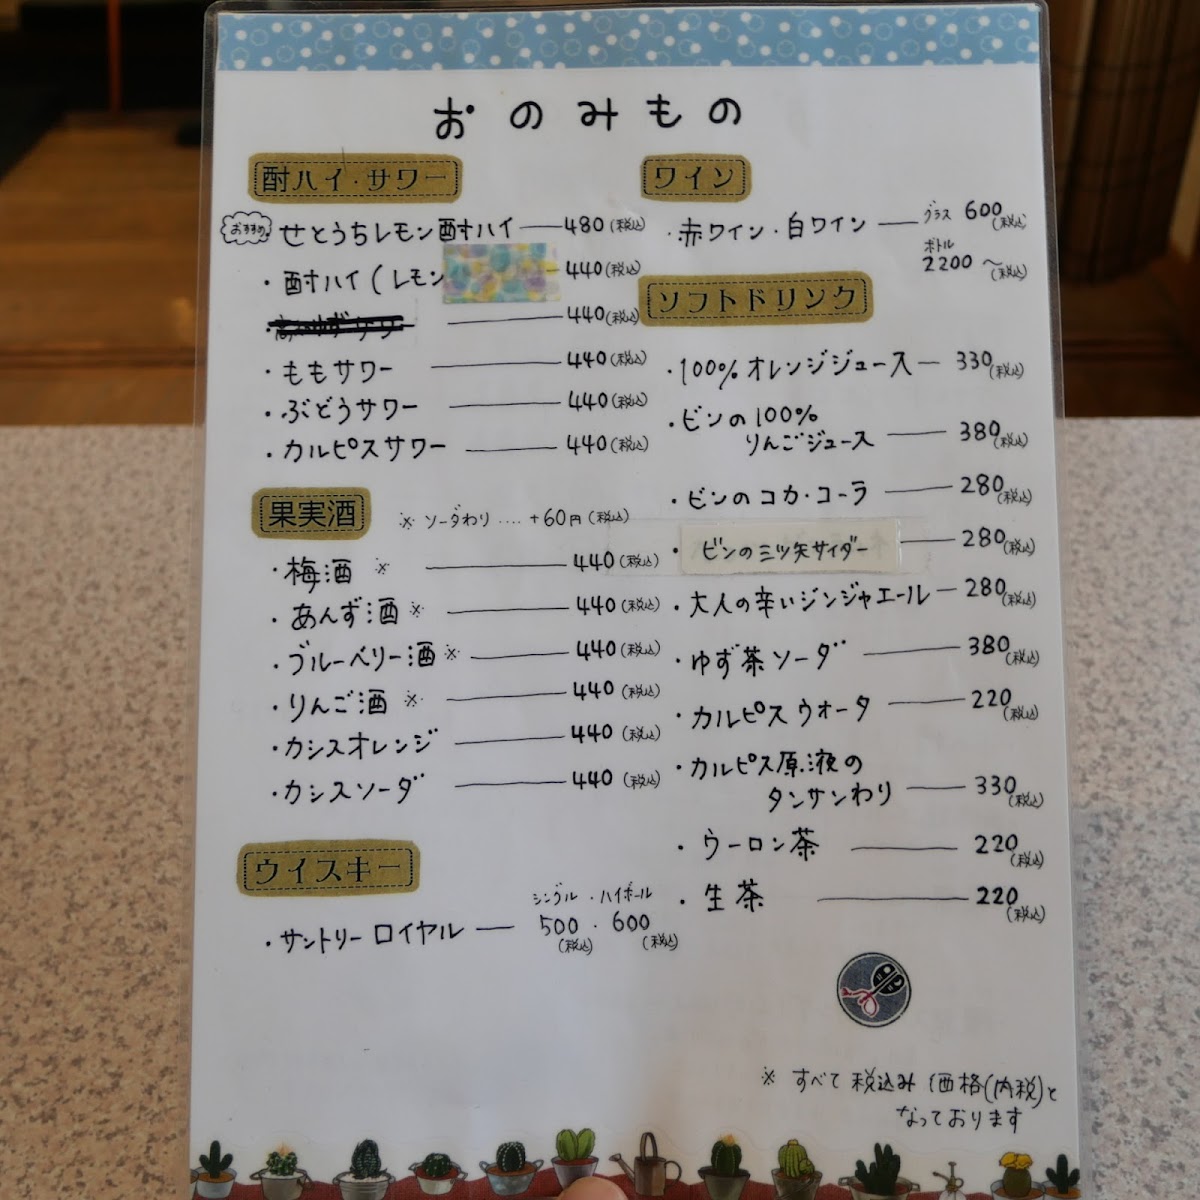 おのみもの
酎ハイ・サワー
おすすめ せとうちレモン酎ハイ 480(税込)
・酎ハイ(レモン 440(税込)
440(税込)
・ももサワー 440(税込)
・ぶどうサワー 440(税込)
・カルピスサワー 440(税込)
果実酒 ※ソーダわり‥‥+60円(税込)
・梅酒※ 440(税込)
・あんず酒※ 440(税込)
・ブルーベリー酒※ 440(税込)
・りんご酒※ 440(税込)
・カシスオレンジ 440(税込)
・カシスソーダ 440(税込)
ウイスキー
シングル・ハイボール
・サントリーロイヤル 500(税込)・600(税込)
ワイン
・赤ワイン・白ワイン グラス 600(税込)
ボトル 2200〜(税込)
ソフトドリンク
・100%オレンジジュース 330(税込)
・ビンの100%
りんごジュース 380(税込)
・ビンのコカ・コーラ 280(税込)
・ビンの三ツ矢サイダー 280(税込)
・大人の辛いジンジャエール 280(税込)
・ゆず茶ソーダ 380(税込)
・カルピスウォータ 220(税込)
・カルピス原液の
タンサンわり 330(税込)
・ウーロン茶 220(税込)
・生茶 220(税込)
※すべて税込み価格(内税)と
なっております